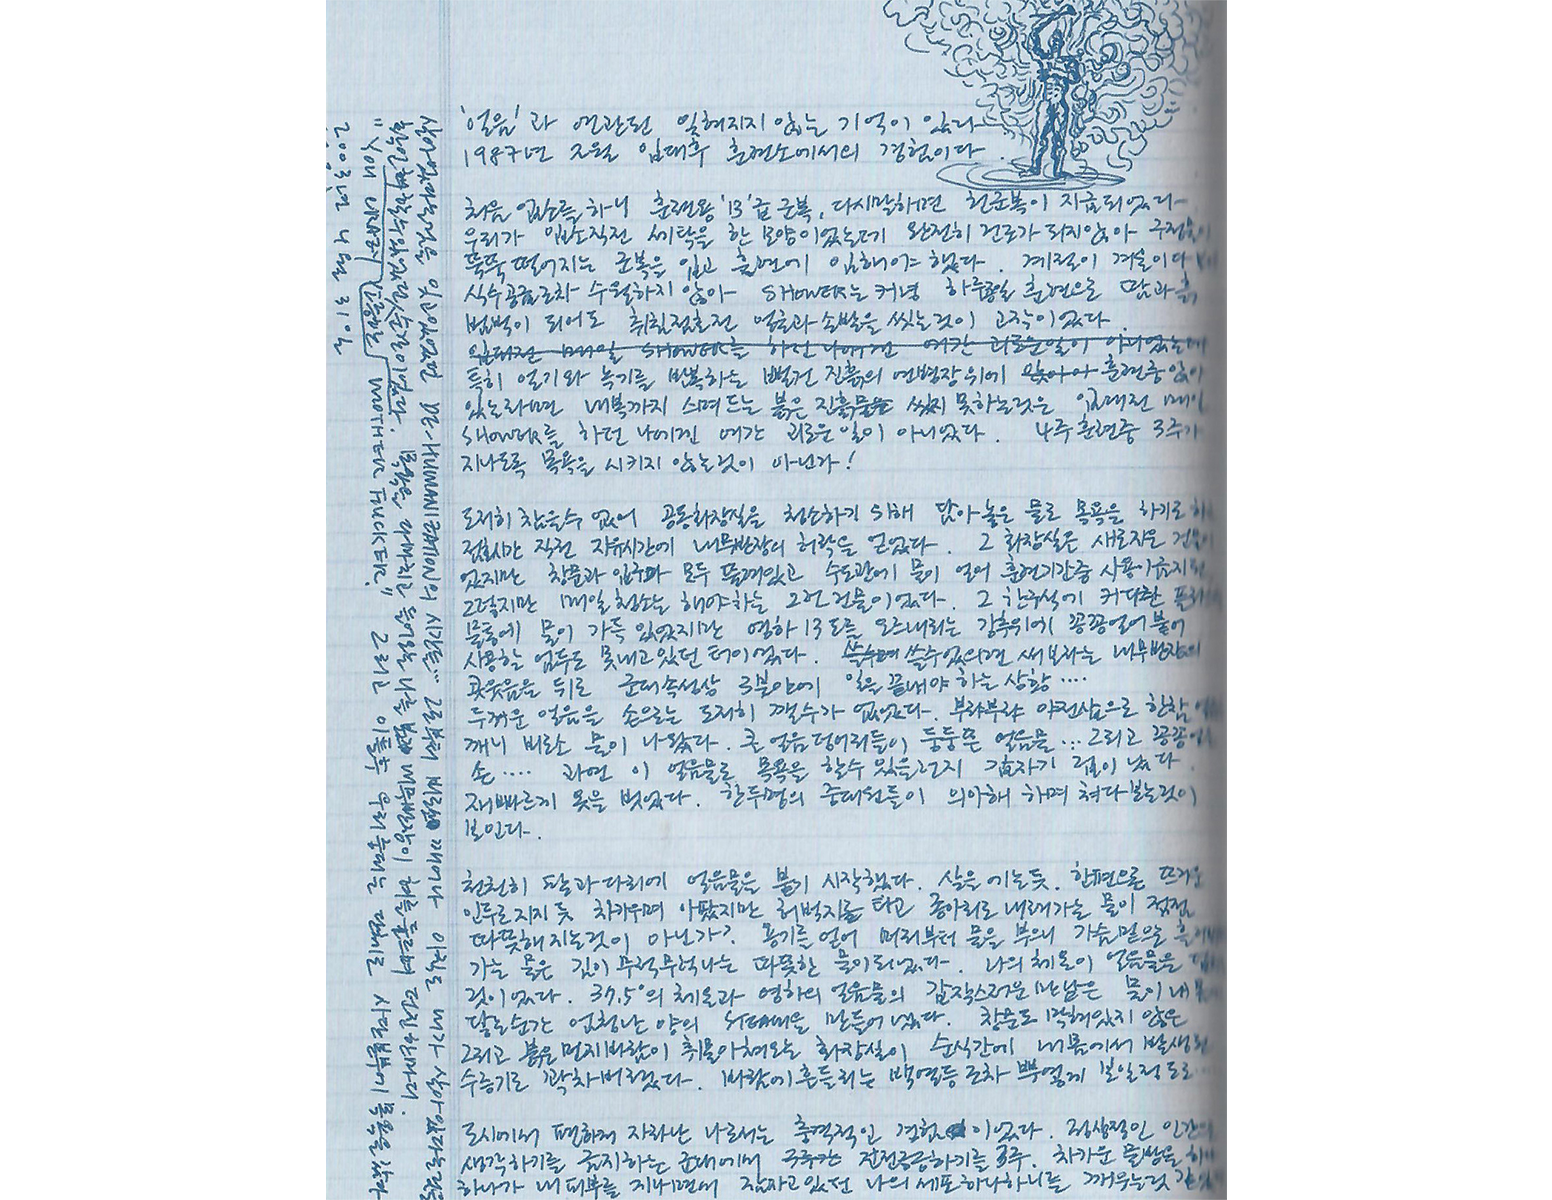 '얼음'과 연관된 잊혀지지 않는 기억이 있다
1987년 2월 입대후 훈련소에서의 경험이다.
처음 입소를 하니 훈련용 'B'급 군복, 다시말하면 헌군복이 지급되었다
우리가 입소직전 세탁을 한 모양이었는데 완전히 건조가 되지않아
뚝뚝 떨어지는 군복을 입고 훈련에 임해야 했다. 계절이 겨울이다
식수공급조차 수월하지 않아 SHOWER는 커녕 하루종일 훈련으로 땀과 흙
범벅이 되어도 취침점호전 얼굴과 손발을 씻는것이 고작이었다
입대전 매일 SHOWER를 하던 나에겐 여간 괴로운일이 아니었는데
특히 얼기와 녹기를 반복하는 뻘건 진흙의 연병장위에 훈련중 앉아
있노라면 내복까지 스며드는 붉은 진흙물을 씻지 못하는것은 입대전 매일
SHOWER를 하던 나에겐 여간 괴로운일이 아니었다. 4주 훈련중 3주가
지나도록 목욕을 시키지 않는것이 아닌가!
도저히 참을수 없어 공동화장실을 청소하기 위해 담아 놓은 물로 목욕을 하기로
점호시간 직전 자유시간에 내무반장의 허락을 얻었다. 그 화장실은 새로지은
었지만 창문과 입구가 모두 뚫려있고 수도관에 물이 얼어 훈련기간중 사용이금지된
그렇지만 매일 청소는 해야하는 그런 건물이었다. 그 한구석에 커다란
물통에 물이 가득 있었지만 영하 13도를 오르내리는 강추위에 꽁꽁얼어 붙어
사용할 엄두도 못내고 있던 터이었다. 쓸수있으면 써보라는 내무반장의
코웃음을 뒤로 군대속성상 3분안에 일을 끝내야 하는 상황....
두꺼운 얼음을 손으로는 도저히 깰수가 없었다. 부랴부랴 야전삽으로 한참
깨니 비로소 물이 나왔다. 큰 얼음덩어리들이 둥둥뜬 얼음물... 그리고 꽁꽁
손.... 과연 이 얼음물로 목욕을 할수 있을런지 갑자기 겁이 났다.
재빠르게 옷을 벗었다. 한두명의 중대원들이 의아해 하며 쳐다 보는것이
보인다.
천천히 팔과 다리에 얼음물을 붓기 시작했다. 살을 에는듯. 한편으로 뜨거운
인두로 지지듯 차가우며 아팠지만 허벅지를 타고 종아리로 내려가는 물이 점점
따뜻해지는것이 아닌가? 용기를 얻어 머리부터 물을 부으니 가슴밑으로
가는 물은 김이 무럭무럭나는 따뜻한 물이 되었다. 나의 체온이 얼음물을
것이었다. 37.5°의 체온과 영하의 얼음물의 갑작스러운 만남은 물이 내
닿는순간 엄청난 양의 STEAM을 만들어 냈다. 창문도 막혀있지 않은
그리고 붉은 먼지바람이 휘몰아쳐오는 화장실이 순식간에 내몸에서 발생된
수증기로 꽉차버렸었다. 바람에 흔들리는 백열등조차 뿌옇게 보일정도로....
도시에서 편하게 자라난 나로서는 충격적인 경험이었다. 정상적인 인간의
생각하기를 금지하는 군대에서 전전긍긍하기를 3주. 차가운 물방울
하나가 내 피부를 지나면서 잠자고 있던 나의 세포하나하나를 깨우는것
살아있다는것을 잊어있었던 DE-HUMANIZATION의 시간들... 그로부터 비로소 깨어나 이정도로 내가 살아있다는것을
확인받는 순간이었다. 목욕을 마치고 내무반장이 던진 한마디.
"YOU CRAZY MOTHER FUCKER." 그리고 이틀후 우리중대는 단체로 사단본부에 목욕을
2003년 4월 31일